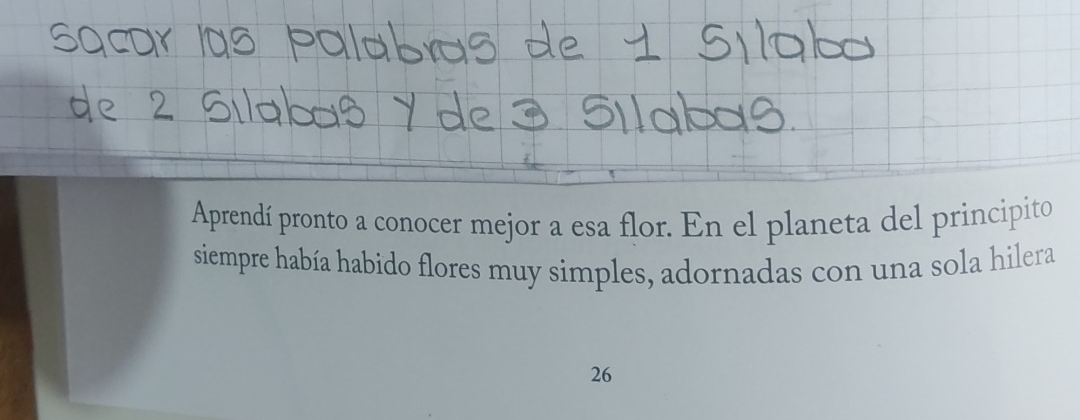 sacar las palabras de 1 silaba
de 2 silabas y de 3 silabas.
Aprendí pronto a conocer mejor a esa flor. En el planeta del principito
siempre había habido flores muy simples, adornadas con una sola hilera
26